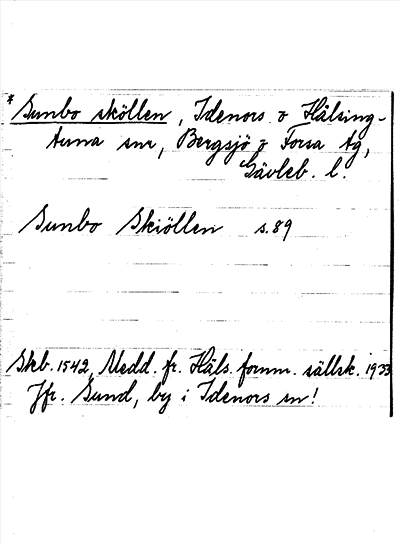 * Sunbo sköllen, Idenors o Hälsing-
tuna snr, Bergsjö o Forsa tg,
Gävleb. l.
Sunbo Skiöllen s.89
Skb. 1542, Medd. fr. Häls. fornm. sällsk. 1933
Jfr. Sund, by i Idenors sn!